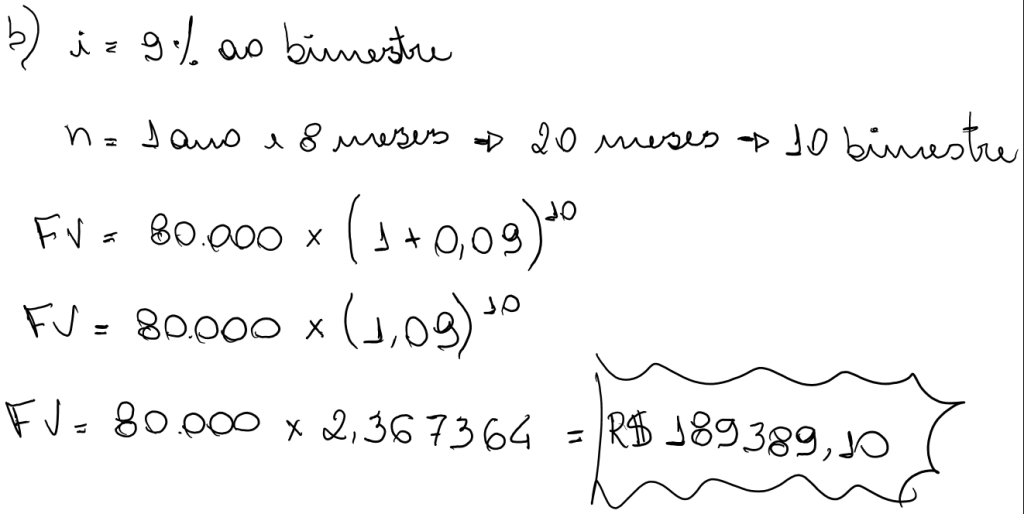 b) i = 9% ao bimestre
n = 1 ano e 8 meses → 20 meses → 10 bimestre
FV = 80.000 x (1 + 0,09)^10
FV = 80.000 x (1,09)^10
FV = 80.000 x 2,367364 = R$ 189389,10